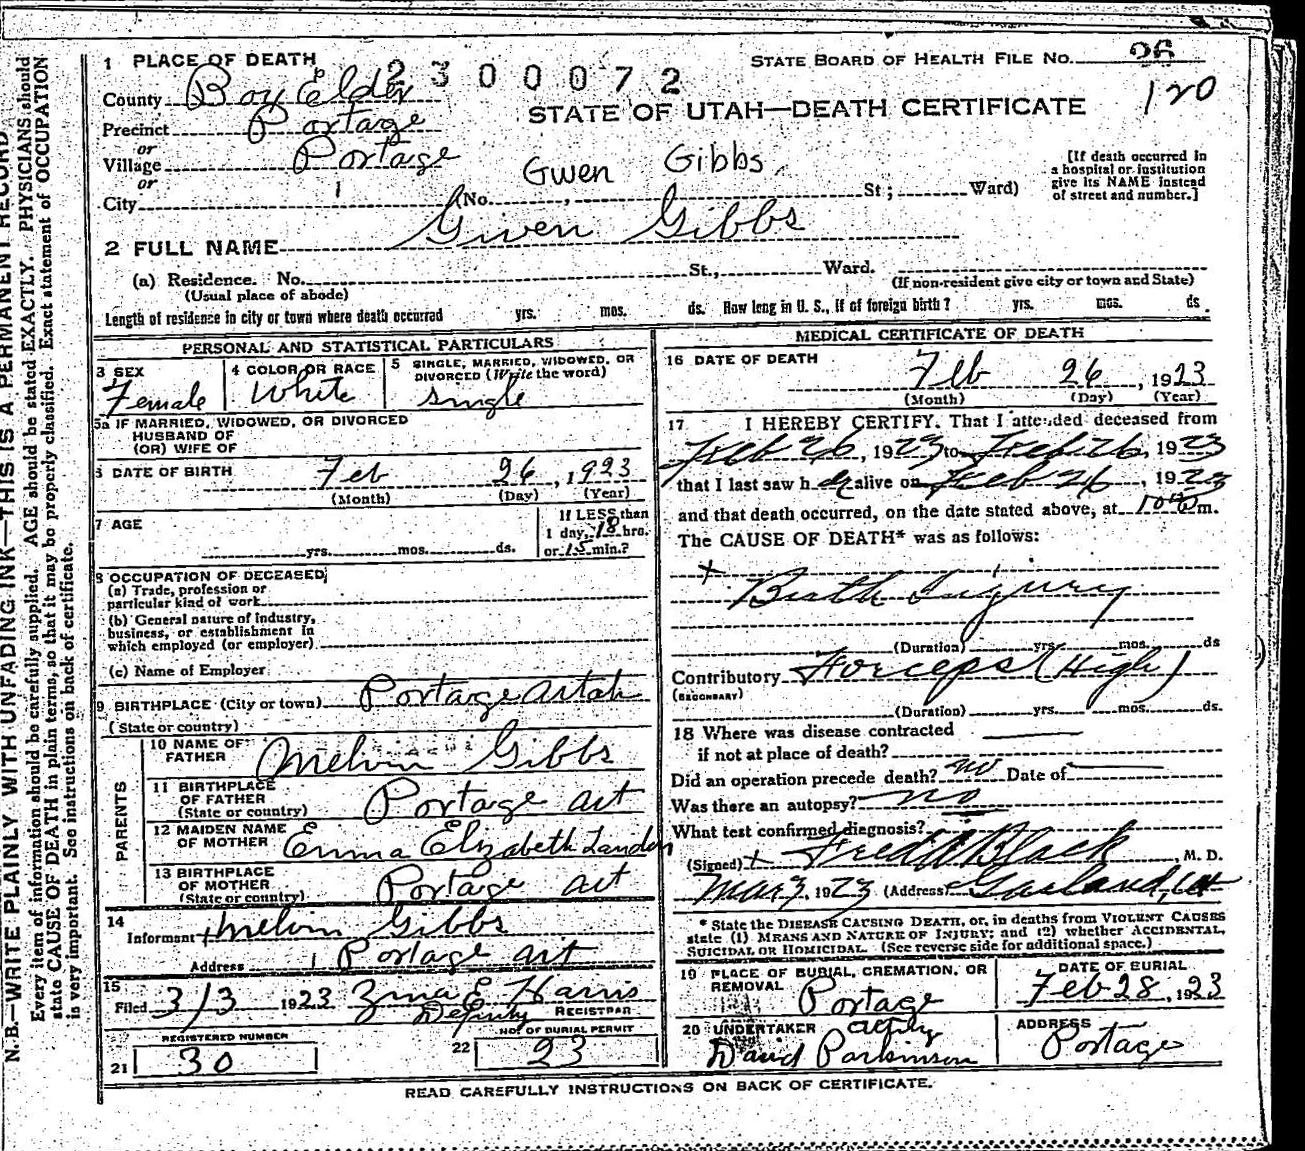 N.B.—WRITE PLAINLY WITH UNFADING INK—THIS IS A PERMANENT RECORD
Every item of information should be carefully supplied. AGE should be stated EXACTLY. PHYSICIANS should
state CAUSE OF DEATH in plain terms, so that it may be properly classified. Exact statement of OCCUPATION
is very important. See instructions on back of certificate.
1 PLACE OF DEATH 2300072 STATE BOARD OF HEALTH FILE NO. 26
County Box Elder STATE OF UTAH—DEATH CERTIFICATE 120
Precinct Portage
or
Village Portage Gwen Gibbs
or
City (No. St; Ward)
[If death occurred in
a hospital or institution
give its NAME instead
of street and number.]
2 FULL NAME Gwen Gibbs
(a) Residence. No. St., Ward.
(Usual place of abode) (If non-resident give city or town and State)
Length of residence in city or town where death occurred yrs. mos. ds. How long in U. S., if of foreign birth? yrs. mos. ds
PERSONAL AND STATISTICAL PARTICULARS
3 SEX 4 COLOR OR RACE 5 SINGLE, MARRIED, WIDOWED, OR
DIVORCED (Write the word)
Female White Single
5a IF MARRIED, WIDOWED, OR DIVORCED
HUSBAND OF
(OR) WIFE OF
6 DATE OF BIRTH Feb 26, 1923
(Month) (Day) (Year)
7 AGE If LESS than
1 day, 18 hrs.
yrs. mos. ds. or 15 min.?
8 OCCUPATION OF DECEASED
(a) Trade, profession or
particular kind of work
(b) General nature of Industry,
business, or establishment in
which employed (or employer)
(c) Name of Employer
9 BIRTHPLACE (City or town) Portage Utah
(State or country)
PARENTS
10 NAME OF
FATHER Melvin Gibbs
11 BIRTHPLACE
OF FATHER
(State or country) Portage Ut
12 MAIDEN NAME
OF MOTHER Emma Elizabeth
13 BIRTHPLACE
OF MOTHER
(State or country) Portage Ut
14
Informant Melvin Gibbs
Address Portage Ut
15
Filed 3/3 1923 Zina E Harris
Deputy REGISTRAR
REGISTERED NUMBER NO. OF BURIAL PERMIT
21 30 22 23
MEDICAL CERTIFICATE OF DEATH
16 DATE OF DEATH
Feb 26, 1923
(Month) (Day) (Year)
17 I HEREBY CERTIFY, That I attended deceased from
Feb 26, 1923 to Feb 26, 1923
that I last saw h er alive on Feb 26, 1923
and that death occurred, on the date stated above, at 10 m.
The CAUSE OF DEATH* was as follows:
Birth Injury
(Duration) yrs. mos. ds
Contributory Forceps (High)
(SECONDARY)
(Duration) yrs. mos. ds.
18 Where was disease contracted
if not at place of death?
Did an operation precede death? no Date of
Was there an autopsy? no
What test confirmed diagnosis?
(Signed) Fred W Black, M. D.
Mar 3, 1923 (Address) Garland, Ut
* State the DISEASE CAUSING DEATH, or, in deaths from VIOLENT CAUSES
state (1) MEANS AND NATURE OF INJURY; and (2) whether ACCIDENTAL,
SUICIDAL OR HOMICIDAL. (See reverse side for additional space.)
19 PLACE OF BURIAL, CREMATION, OR
REMOVAL Portage
DATE OF BURIAL
Feb 28, 1923
20 UNDERTAKER
David Parkinson
ADDRESS
Portage
READ CAREFULLY INSTRUCTIONS ON BACK OF CERTIFICATE.